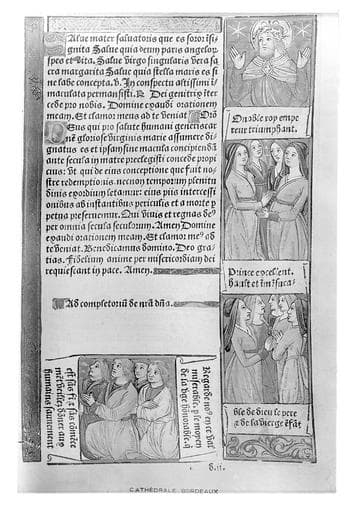 Salue mater saluatoris que es soror insi
gnita Salue virgo quam deum patris angelor̃
spes et vita. Salue virgo singularis vera sa
cra margarita Salue quia stella maris es si
ne labe concepta. ℣. In conspectu altissimi ĩ
maculata permansisti. ℟. Dei genitrix ĩter
cede pro nobis. Domine exaudi orationem
meam. Et clamor meus ad te veniat Orõ
Deus qui pro salute humani generis car
nẽ gloriose virginis marie assumere di
gnatus es et ipsam sine macula concipiendã
ante secula in matre preelegisti concede propi
cius: vt qui de eius conceptione que fuit no
stre redemptionis
nec non temporum plenitu
dinis exordium letamur: eius piis intercessi
onibus ab instantibus periculis et a morte p
petua preseruemur. Qui viuis et regnas deº
per omnia secula seculorum. Amen Domine
exaudi orationem meam. Et clamor meº ad
te veniat. Benedicamus domino. Deo gra
tias. Fidelium anime per misericordiam dei
requiescant in pace. Amen.
Ad completoriũ de nr̃a dña.
O noble roy empe
reur triumphant.
Prince excellent.
hault et
de dieu le pere
et de la vierge
est
humains
Regarde
miserable
de la honnorable
CATHÉDRALE BORDEAUX